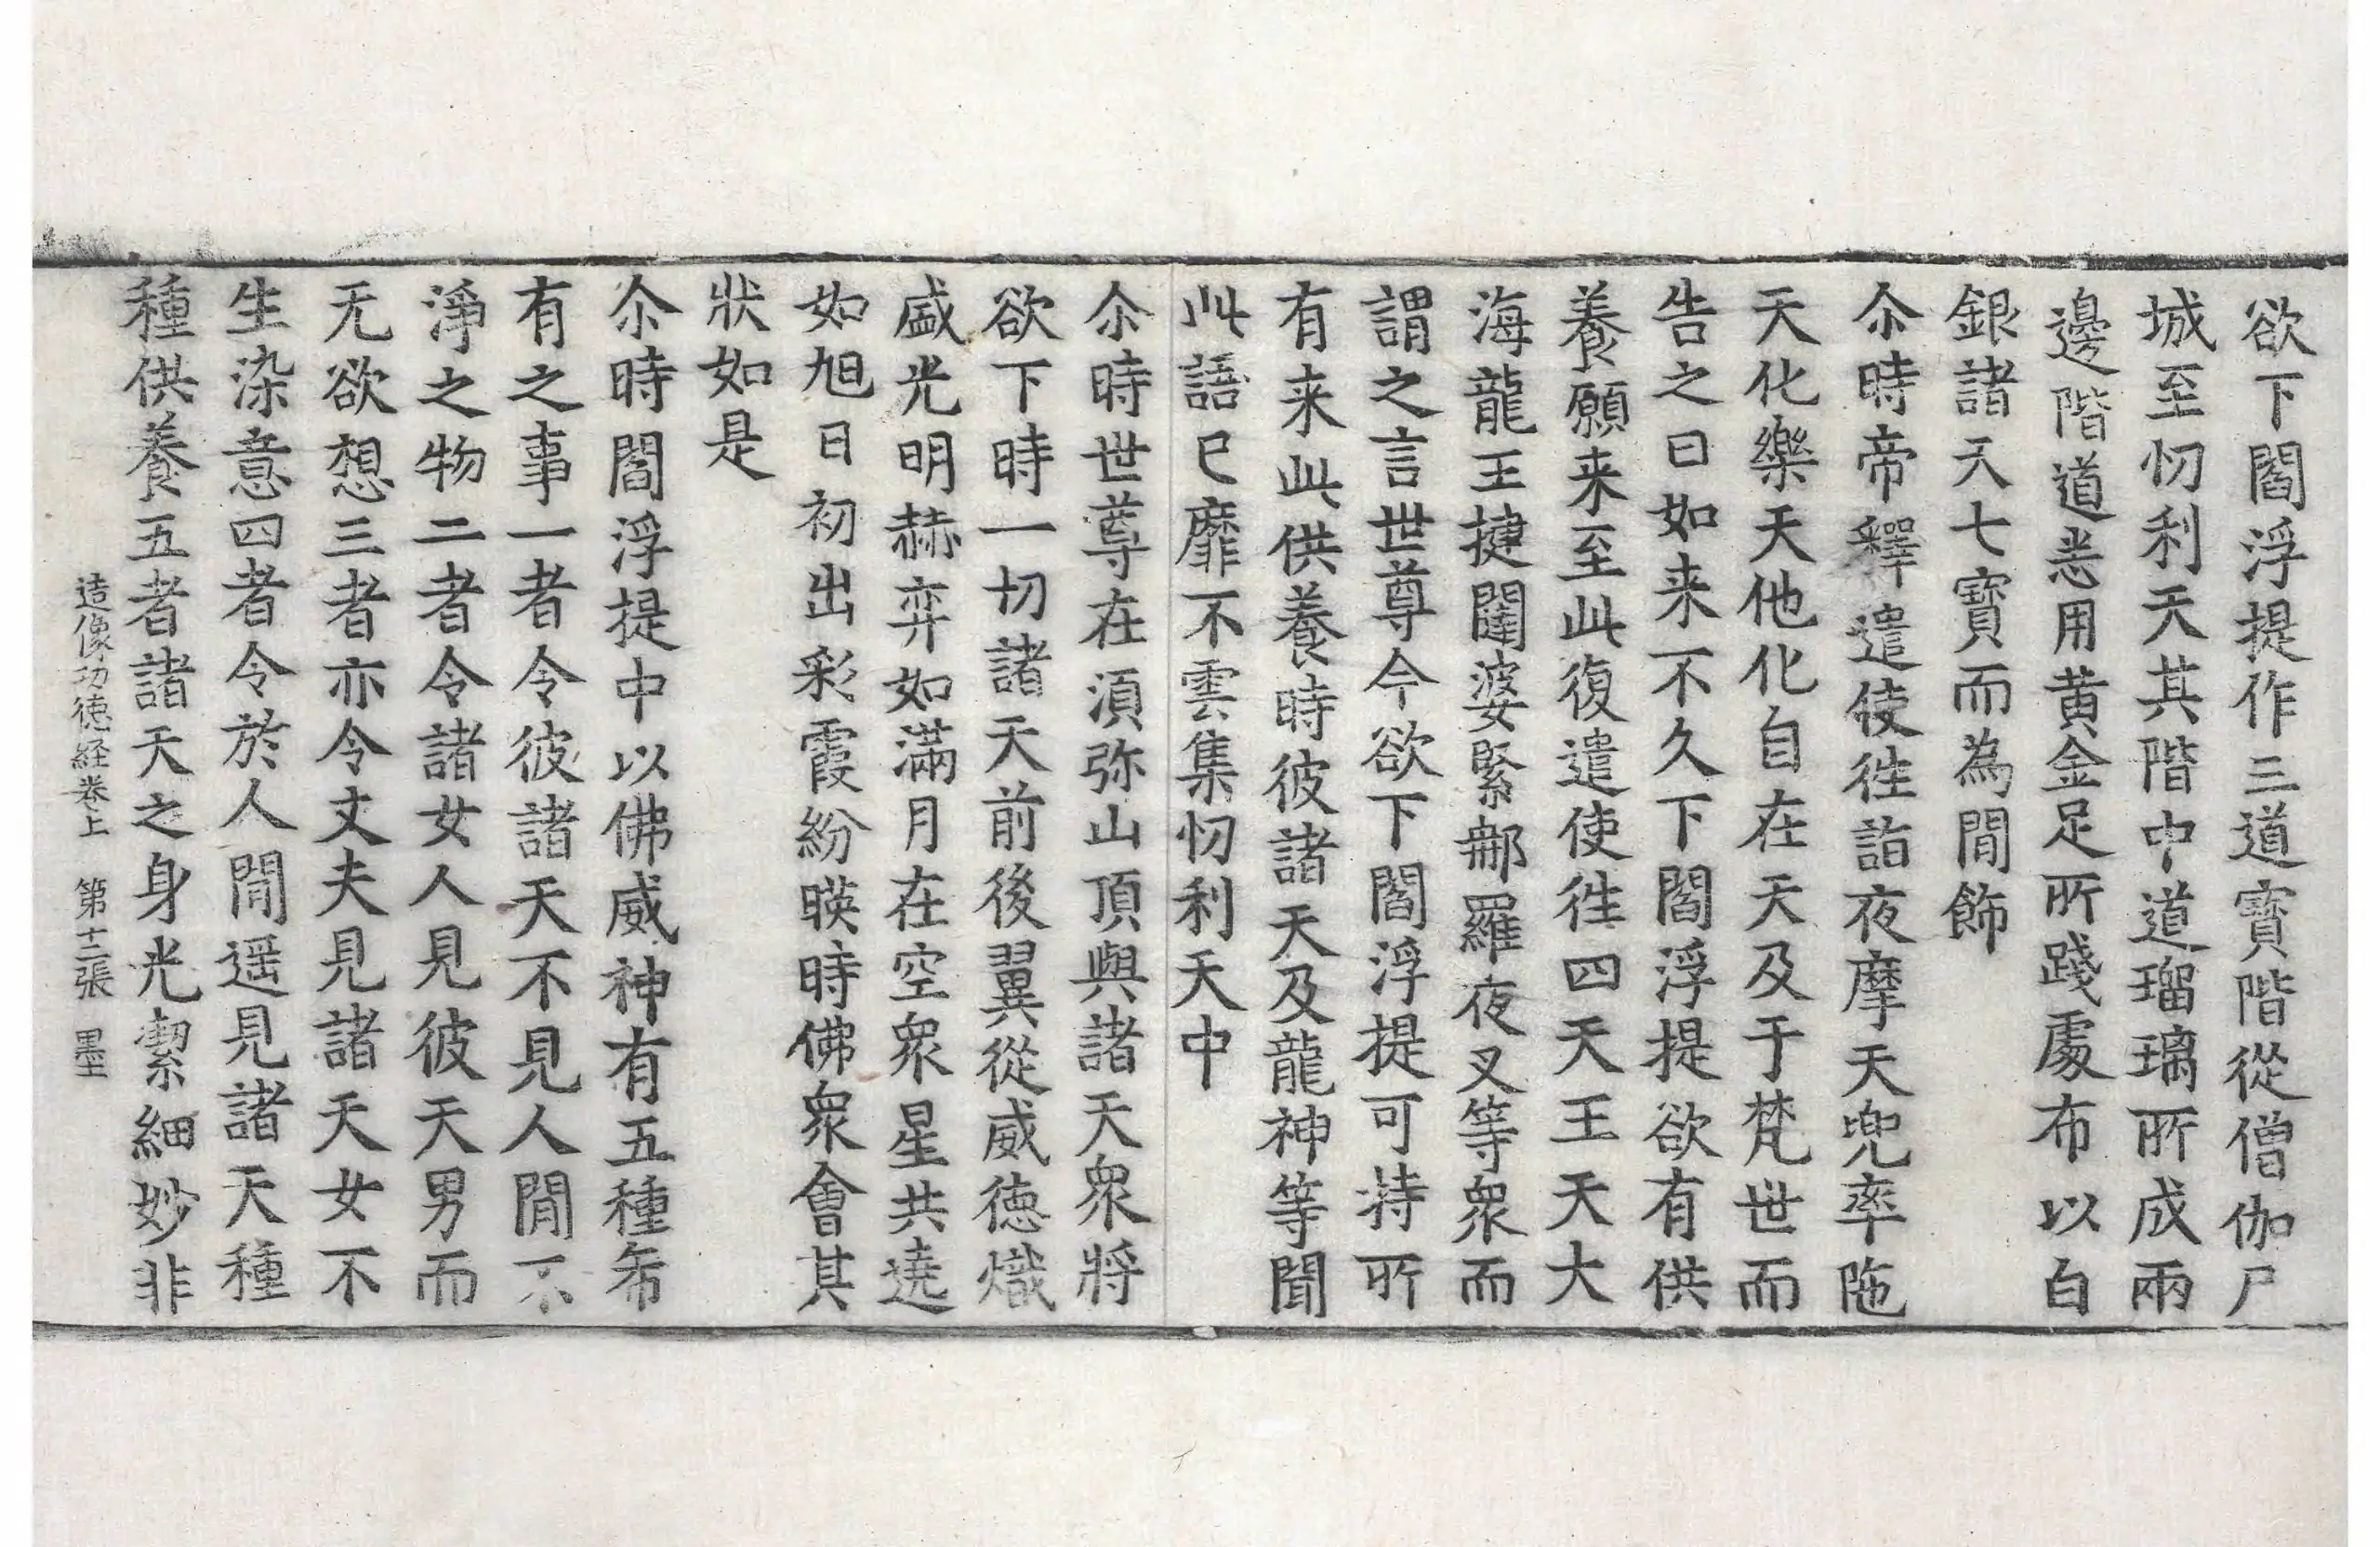 欲下閻浮提作三道寶階從僧伽尸
城至忉利天其階中道瑠璃所成兩
邊階道悉用黃金足所踐處布以白
銀諸天七寶而為閒飾
尒時帝釋遣使往詣夜摩天兜率陁
天化樂天他化自在天及于梵世而
告之曰如来不久下閻浮提欲有供
養願来至此復遣使往四天王天大
海龍王揵闥婆緊那羅夜叉等衆而
謂之言世尊今欲下閻浮提可持所
有来此供養時彼諸天及龍神等聞
此語已靡不雲集忉利天中
尒時世尊在湏弥山頂與諸天衆將
欲下時一切諸天前後翼從威德熾
盛光明赫弈如滿月在空衆星共遶
如旭日初出彩霞紛暎時佛衆會其
狀如是
尒時閻浮提中以佛威神有五種希
有之事一者令彼諸天不見人閒不
淨之物二者令諸女人見彼天男而
无欲想三者亦令丈夫見諸天女不
生染意四者令於人閒遥見諸天種
種供養五者諸天之身光潔細妙非
造像功德経卷上 第十二張 墨